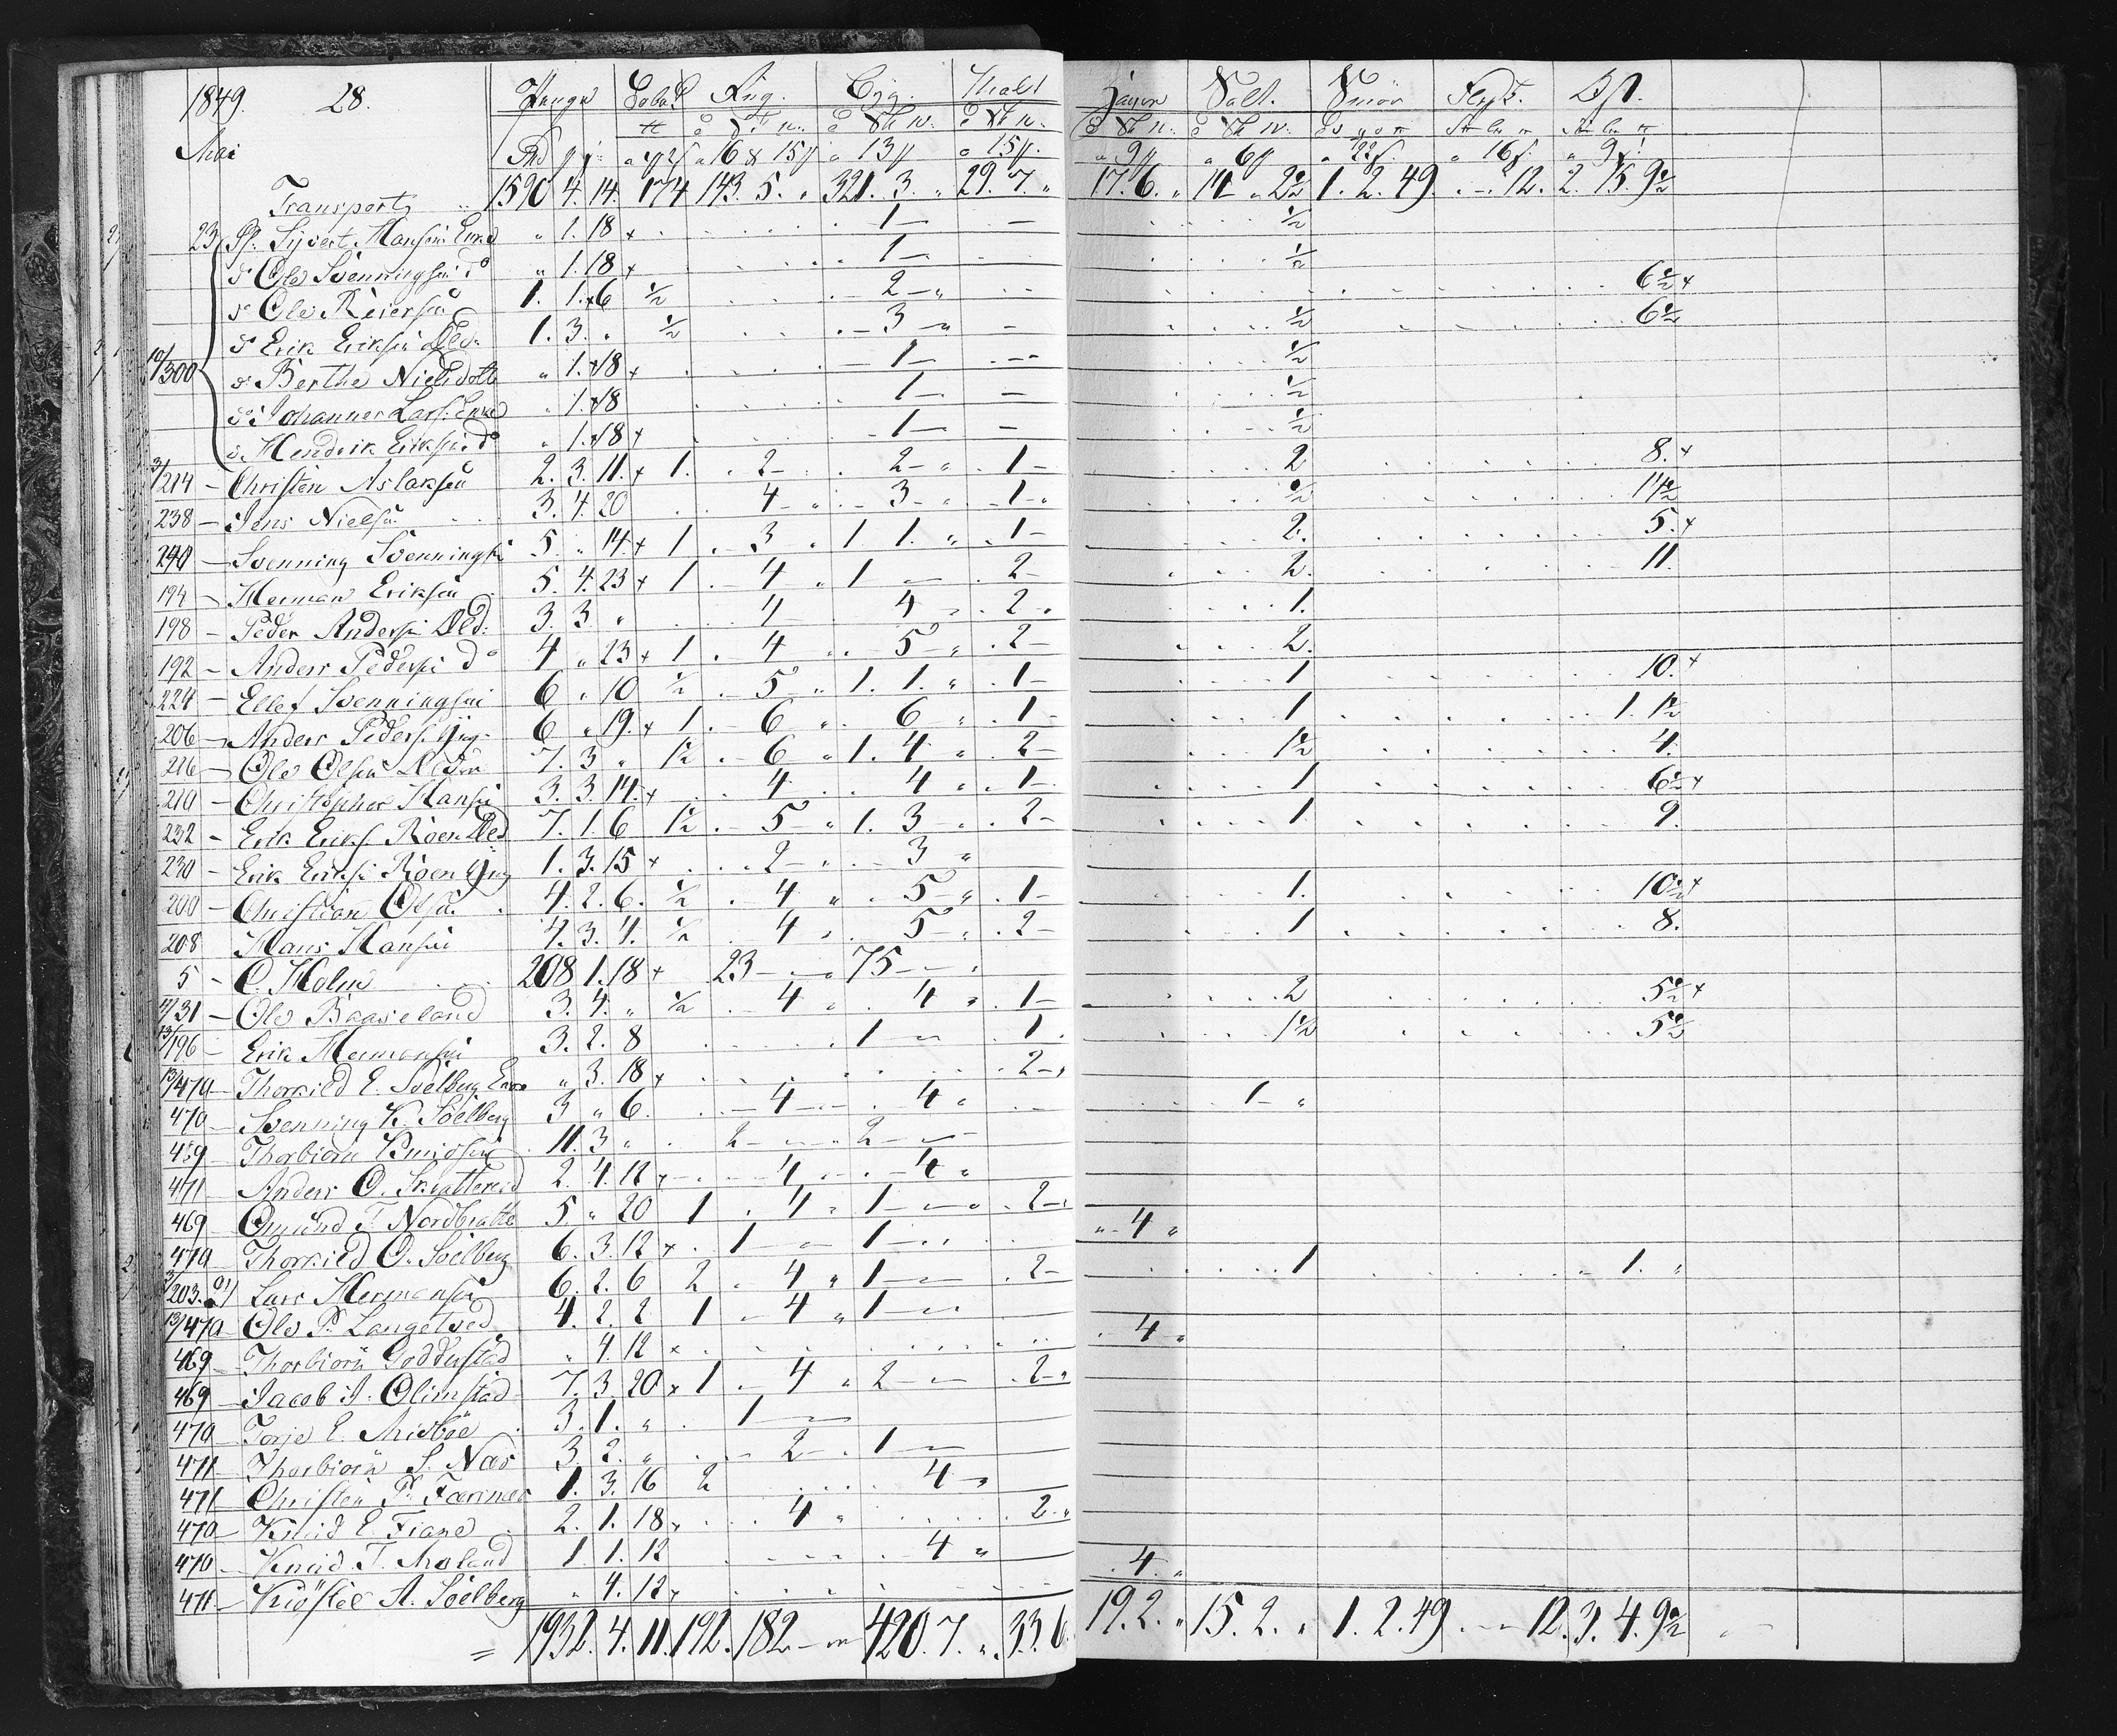 1849. 28. Penge Tobak Rug. Byg. Malt Salt. Smör Flesk. Ost.
Mai
16 & 15 13 15 9 6 22 16 9
Transport 1590 4. 14. 174 143. 5. 321. 3. 29. 7. 17. 6. 14 2½ 1. 2. 49. 12. 2. 15. 9½
23 Sivert Hansens Enke 1. 18 + 1 ½
do Ole Svenningsen do 1. 18 + 1 ½
do Ole Reiersen 1. 1. 6 ½ 2 6½ +
do Erik Eriksen Æld. 1. 3. ½ 3 ½ 6½
10/300 do Berthe Nielsdatter 1. 18 + 1 ½
do Johannes Lars. Enke 1. 18 1 ½
do Hendrik Eriksen do 1. 18 + 1 ½
3/214 - Christen Aslaksen 2. 3. 11. + 1. 2 2 1 2 8. +
238 - Jens Nielsen 3. 4. 20 4 3 1 ½ 11½
240 - Svenning Svenningsen 5. " 14. + 1 3 1 1. 1 2. 5. +
194 - Herman Eriksen 5. 4. 23 + 1 4 1 2 2. 11.
198 - Peder Andersen Æld: 3. 3 " 4 4 2 1.
192 - Anders Pedersen do 4 " 23 + 1 4 5 2 2.
224 - Ellef Svenningsen 6 " 10 ½ 5 1. 1. 1 1 10. +
206 - Anders Peders. yng. 6 " 19. + 1. 6 6 1 1 1. 1½
216 - Ole Olsen 7. 3 " 1½ 6 1. 4 2 1½ 4.
210 - Christopher Hansen 3. 3. 14. + 4 4 1 1 6½ +
232 - Erik Eriks. Roen Æld 7. 1. 6 1½ 5 1. 3 2 1 9.
230 - Erik Eriksen Roen yng 1. 3. 15 + 2 3
200 - Christian Olsen 4. 2. 6. ½ 4 5 1 1. 10½ +
208 Hans Hansen 4. 3. 4. ½ 4 5 2 1 8.
5 - O. Holm 208 1. 18 + 23 75
11/31 - Ole Baaseland 3. 4. " ½ 4 4 1 2 5½ +
13/196 - Erik Hermansen 3. 2. 8 1 1 1½ 5½
13/470 - Thorkild E. Söelberg Enke " 3. 18 + 2
470 - Svenning K. Söelberg 3 " 6. 4 4 1
459 - Thorbiörn Knudsen 11. 3 " 2 2
471 - Anders O. Skiatterud 2. 4. 12 + 4 4
469 - Omund T. Nordbraatte 5 " 20 1 4 1 2 4
470 - Thorkild O. Söelberg 6. 3. 12 + 1 1
3/203. Lars Hermansen 6. 2. 6 2 4 1 2 1 1.
13/470 - Ole P. Langetved 4. 2. 2 1 4 1
469 - Thorbiörn Godderstad " 4. 12 + 4
469 - Jacob J. Olimstad 7. 3 20 + 1 4 2 2
470 - Torje E. Misböe 3. 1. " 1
471 - Thorbiörn S. Næs 3. 2. " 2 1
471 - Christen P. Færinæs 1. 3. 16 2 4
470 - Knud E. Fiane 2. 1. 18 + 4 2
470 - Knud T. Moland 1. 1. 12 4
471 - Kiöstel A. Söelberg " 4. 12 + 4
= 1932. 4. 11. 192. 182 420. 7. 33. 6. 19. 2. 15. 2. 1. 2. 49 12. 3. 4. 9½